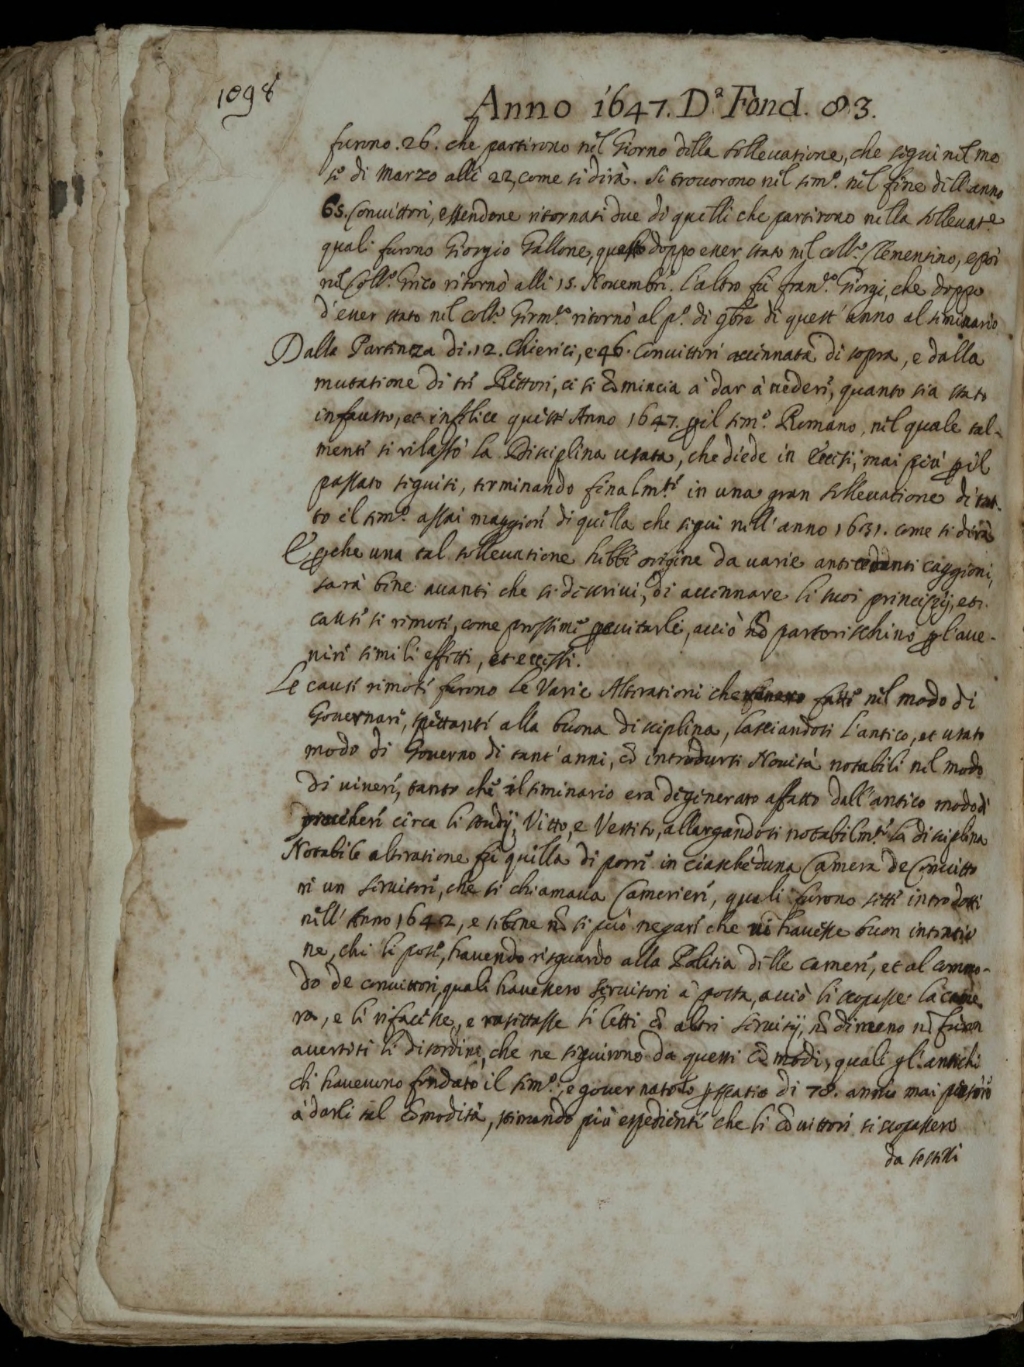 1098
Anno 1647. Dª Fond. 83.
furono .26. che partirono nel Giorno della sollevatione, che seguì nel me
se di Marzo alli 22, come si dirà. Si trovorono nel Sem.º nel fine dell'anno
65. Convittori, essendone ritornati due di quelli che partirono nella sollevat.e
quali furono Giorgio Gallone, questo doppo esser stato nel Coll.º Clementino, e poi
nel Coll.º Greco ritornò alli 15. Novembre. L'altro fu Fran.co Giorgi, che doppo
d'esser stato nel Coll.º Germ.co ritornò al p.º di 9bre di quest'anno al seminario
Dalla Partenza di .12. Chierici, e 46. Convittori accennata di sopra, e dalla
mutatione di tre Rettori, ci si comincia à dar à vedere, quanto sia stato
infausto, et infelice questo Anno 1647. p il Sem.º Romano, nel quale tal-
mente si rilassò la Disciplina usata, che diede in eccessi, mai più p il
passato seguiti, terminando finalm.te in una gran sollevatione di tut-
to il sem.º assai maggiore di quella che seguì nell'anno 1631. come si dirà
E perche una tal sollevatione hebbe origine da varie antecedenti caggioni,
sarà bene avanti che si descrivi, di accennare li suoi principij, et i
cause si rimote, come prossime p evitarle, acciò nõ partorischino p l'ave-
nire simili effetti, et eccessi.
Le cause rimote furono le Varie Alterationi che fatte nel modo di
Governare, spettante alla buona disciplina, lasciandosi l'antico, et usato
modo di Governo di tant'anni, cõ introdursi Novità notabili nel modo
di vivere, tanto che il seminario era degenerato affatto dall'antico modo di
circa li studij, Vitto, e Vestito, allargandosi notabilm.te la disciplina
Notabile alteratione fu quella di porre in ciascheduna Camera de Convitto
ri un servitore, che si chiamava Cameriere, quali furono introdotti
nell'Anno 1642, e sibene nõ si può negare che vi havesse buon intentio
ne, chi li pose, havendo risguardo alla Politia delle camere, et al commo-
do de convittori, quali havessero servitori à posta, acciò li scopasse la came
ra, e li rifacesse, e rasettasse li letti cõ altri servitij, nõ dimeno nõ furon
avertiti li disordini, che ne seguirono da questi cõmodi, quali gl'antichi
che havevono fondato il Sem.º, e governatolo p spatio di 78. anni mai
à darli tal cõmodità, stimando più espediente che li cõvittori si scopassero
da se stessi